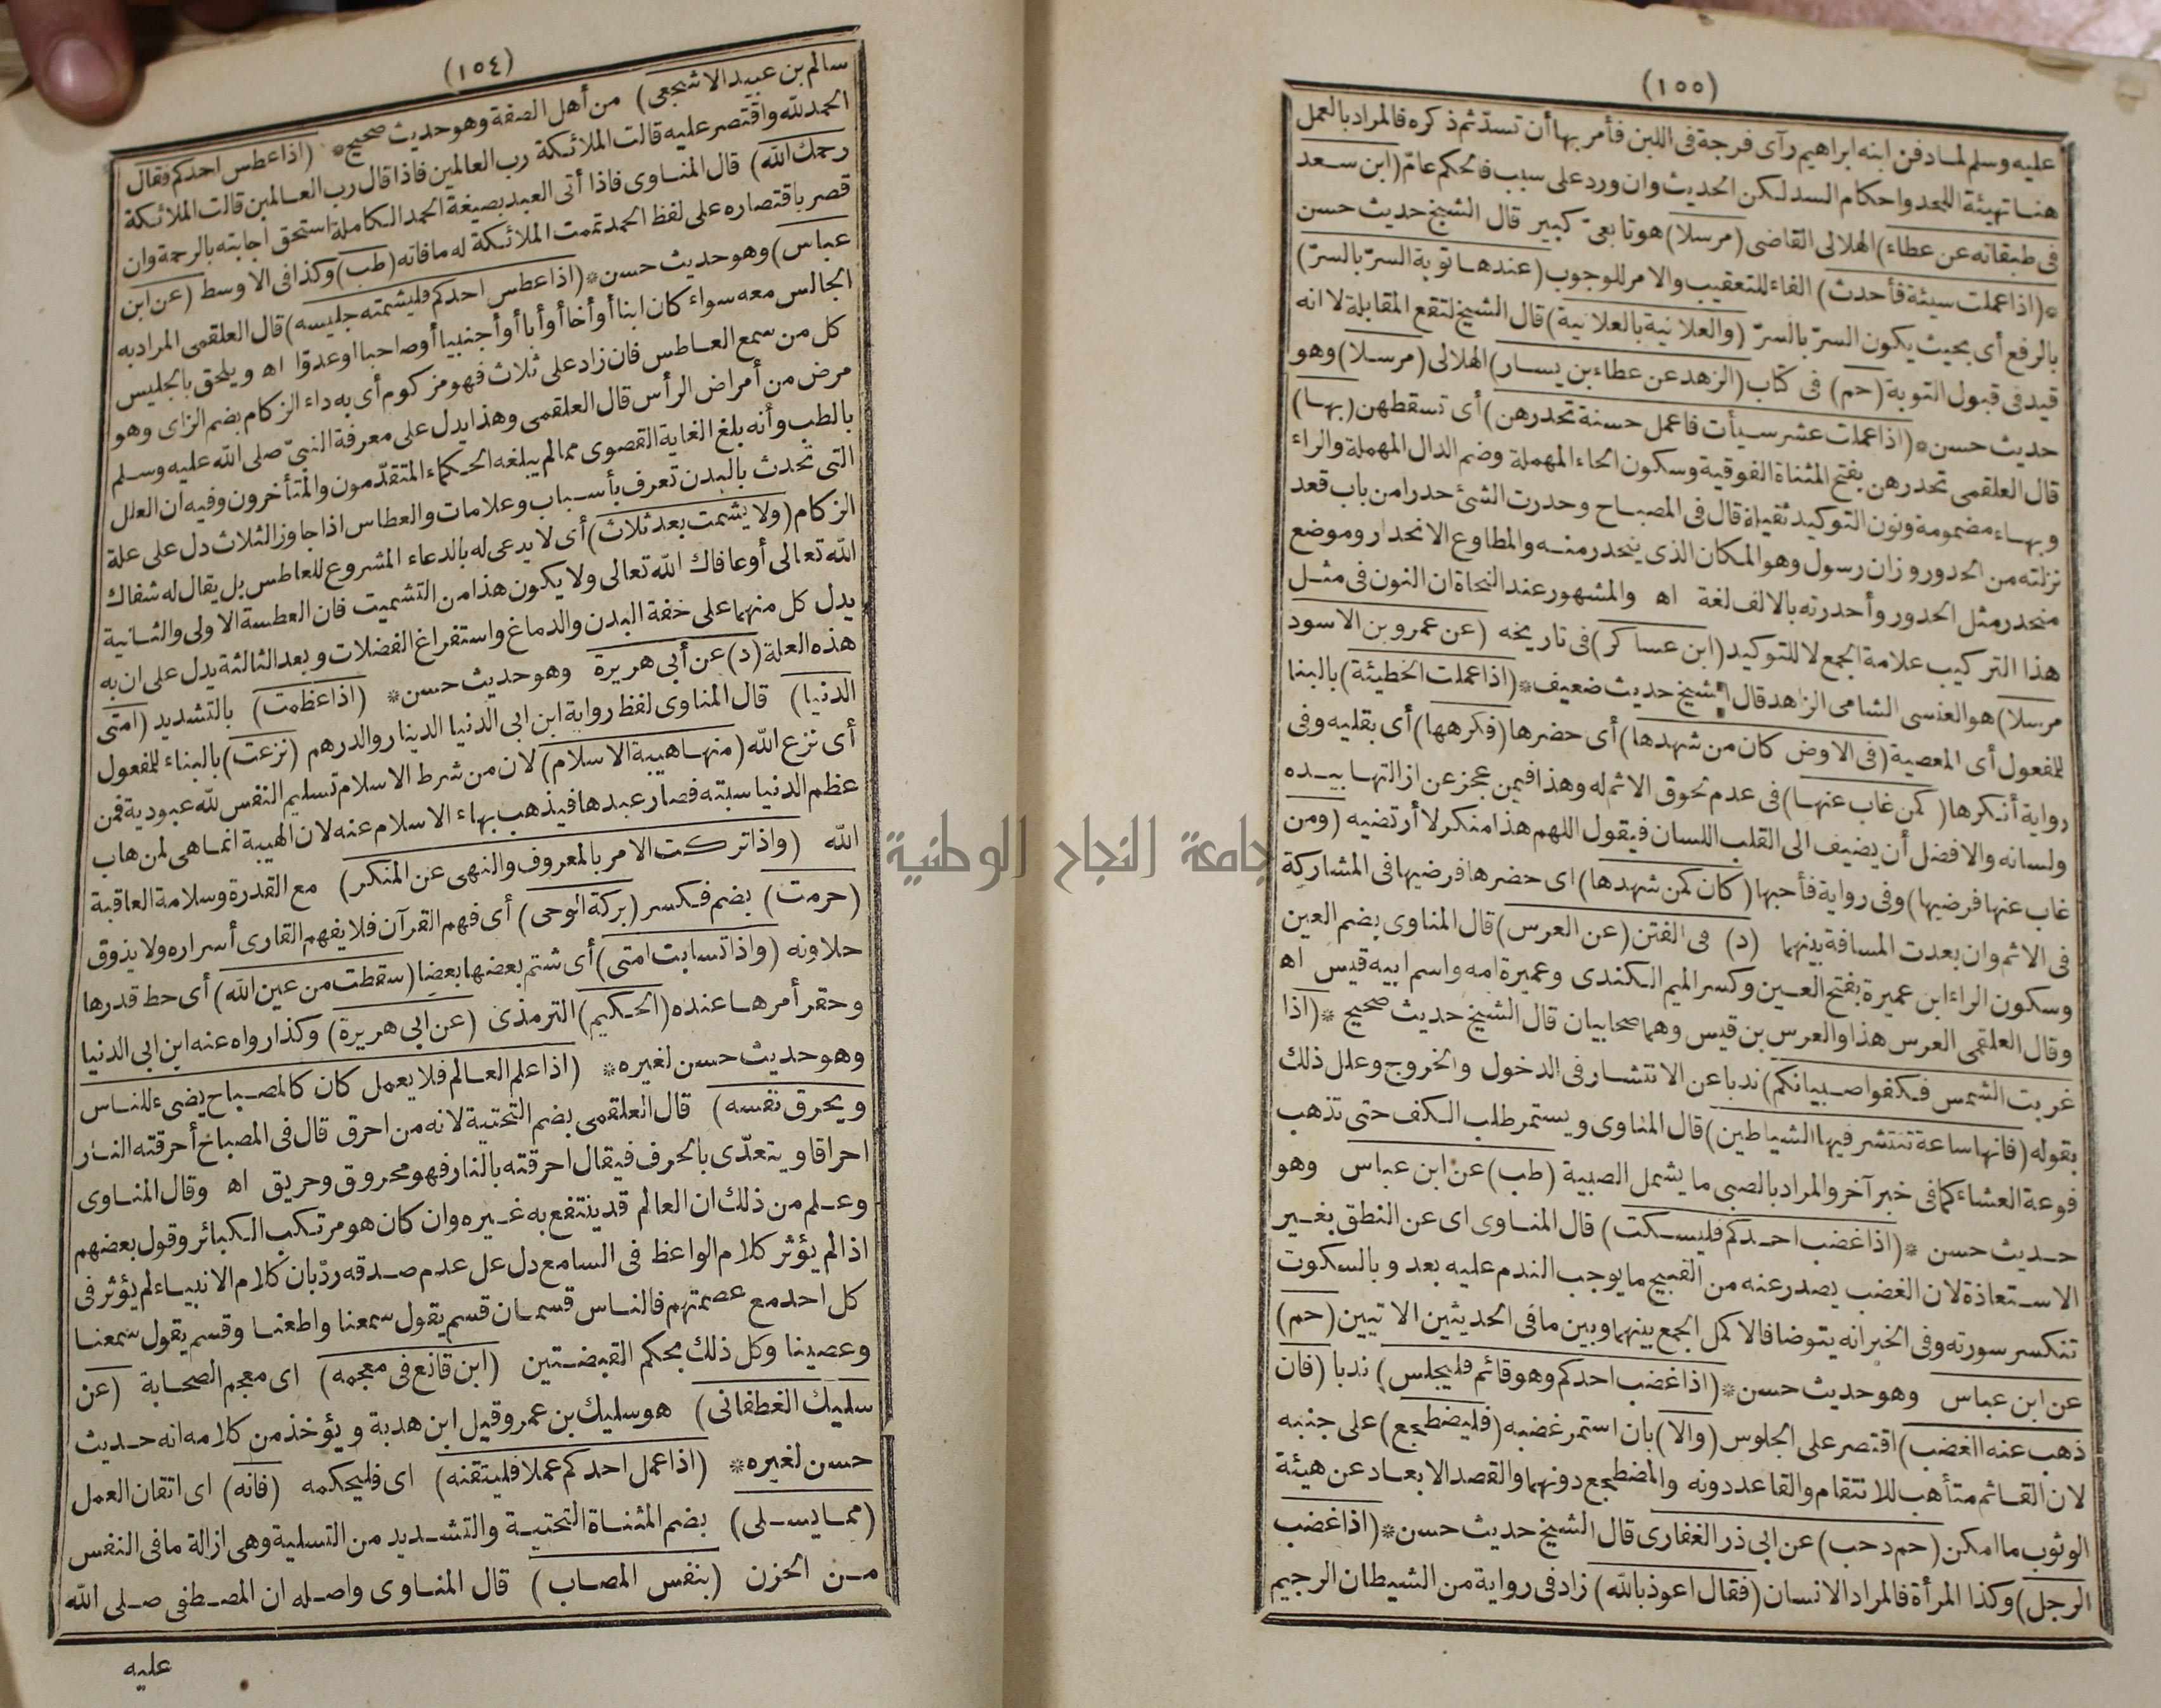 (١٥٤)
سالم بن عبيد الاشجعى) من أهل الصفة وهو حديث صحيح * (اذا عطس احدكم فقال
الحمد لله واقتصر عليه قالت الملائكة رب العالمين فاذا قال رب العالمين قالت الملائكة
رحمك الله) قال المناوى فاذا أتى العبد بصيغة الحمد الكاملة استحق اجابته بالرحمة وان
قصر باقتصاره على لفظ الحمد تممت الملائكة له ما فاته (طب) وكذا فى الاوسط (عن ابن
عباس) وهو حديث حسن * (اذا عطس احدكم فليشمته جليسه) قال العلقمى المراد به
الجالس معه سواء كان ابنا أو أخا أو أبا أو أجنبيا أو صاحبا أو عدوّا اه ويلحق بالجليس
كل من سمع العاطس فان زاد على ثلاث فهو مزكوم أى به داء الزكام بضم الزاى وهو
مرض من أمراض الرأس قال العلقمى وهذا يدل على معرفة النبىّ صلى الله عليه وسلم
بالطب وأنه بلغ الغاية القصوى مما لم يبلغه الحكماء المتقدّمون والمتأخرون وفيه ان العلل
التى تحدث بالبدن تعرف بأسباب وعلامات والعطاس اذا جاوز الثلاث دل على علة
الزكام (ولا يشمت بعد ثلاث) أى لا يدعى له بالدعاء المشروع للعاطس بل يقال له شفاك
الله تعالى أو عافاك الله تعالى ولا يكون هذا من التشميت فان العطسة الاولى والثانية
يدل كل منهما على خفة البدن والدماغ واستفراغ الفضلات وبعد الثالثة يدل على ان به
هذه العلة (د) عن أبى هريرة وهو حديث حسن * (اذا عظمت) بالتشديد (امتى
الدنيا) قال المناوى لفظ رواية ابن ابى الدنيا الدينار والدرهم (نزعت) بالبناء للمفعول
أى نزع الله (منها هيبة الاسلام) لان من شرط الاسلام تسليم النفس لله عبودية فمن
عظم الدنيا سبته فصار عبدها فيذهب بهاء الاسلام عنه لان الهيبة انما هى لمن هاب
الله (واذا تركت الامر بالمعروف والنهى عن المنكر) مع القدرة وسلامة العاقبة
(حرمت) بضم فكسر (بركة الوحى) أى فهم القرآن فلا يفهم القارى أسراره ولا يذوق
حلاوته (واذا تسابت امتى) أى شتم بعضها بعضا (سقطت من عين الله) أى حط قدرها
وحقر أمرها عنده (الحكيم) الترمذى (عن ابى هريرة) وكذا رواه عنه ابن ابى الدنيا
وهو حديث حسن لغيره * (اذا علم العالم فلا يعمل كان كالمصباح يضىء للناس
ويحرق نفسه) قال العلقمى بضم التحتية لانه من احرق قال فى المصباح أحرقته النار
احراقا ويتعدّى بالحرف فيقال احرقته بالنار فهو محروق وحريق اه وقال المناوى
وعلم من ذلك ان العالم قد ينتفع به غيره وان كان هو مرتكب الكبائر وقول بعضهم
اذا لم يؤثر كلام الواعظ فى السامع دل عل عدم صدقه ردّ بان كلام الانبياء لم يؤثر فى
كل احد مع عصمتهم فالناس قسمان قسم يقول سمعنا واطعنا وقسم يقول سمعنا
وعصينا وكل ذلك بحكم القبضتين (ابن قانع فى معجمه) اى معجم الصحابة (عن
سليك الغطفانى) هو سليك بن عمرو وقيل ابن هدبة ويؤخذ من كلامه انه حديث
حسن لغيره * (اذا عمل احدكم عملا فليتقنه) اى فليحكمه (فانه) اى اتقان العمل
(مما يسلى) بضم المثناة التحتية والتشديد من التسلية وهى ازالة ما فى النفس
من الحزن (بنفس المصاب) قال المناوى واصله ان المصطفى صلى الله
عليه
(١٥٥)
عليه وسلم لما دفن ابنه ابراهيم رآى فرجة فى اللبن فأمر بها أن تسدّ ثم ذكره فالمراد بالعمل
هنا تهيئة اللحد واحكام السد لكن الحديث وان ورد على سبب فالحكم عامّ (ابن سعد
فى طبقاته عن عطاء) الهلالى القاضى (مرسلا) هو تابعىّ كبير قال الشيخ حديث حسن
* (اذا عملت سيئة فأحدث) الفاء للتعقيب والامر للوجوب (عندها توبة السرّ بالسرّ)
بالرفع أى بحيث يكون السرّ بالسرّ (والعلانية بالعلانية) قال الشيخ لتقع المقابلة لا انه
قيد فى قبول التوبة (حم) فى كتاب (الزهد عن عطاء بن يسار) الهلالى (مرسلا) وهو
حديث حسن * (اذا عملت عشر سيأت فاعمل حسنة تحدرهن) أى تسقطهن (بها)
قال العلقمى تحدرهن بفتح المثناة الفوقية وسكون الحاء المهملة وضم الدال المهملة والراء
وبهاء مضمومة ونون التوكيد ثقيلة قال فى المصباح وحدرت الشئ حدرا من باب قعد
نزلته من الحدور وزان رسول وهو المكان الذى ينحدر منه والمطاوع الانحدار وموضع
منحدر مثل الحدور وأحدرته بالالف لغة اه والمشهور عند النحاة ان النون فى مثل
هذا التركيب علامة الجمع لا للتوكيد (ابن عساكر) فى تاريخه (عن عمرو بن الاسود
مرسلا) هو العنسى الشامى الزاهد قال الشيخ حديث ضعيف * (اذا عملت الخطيئة) بالبنا
للمفعول أى المعصية (فى الاوض كان من شهدها) أى حضرها (فكرهها) أى بقلبه وفى
رواية أنكرها (كمن غاب عنها) فى عدم لحوق الاثم له وهذا فيمن عجز عن ازالتها بيده
ولسانه والافضل أن يضيف الى القلب اللسان فيقول اللهم هذا منكر لا أرتضيه (ومن
غاب عنها فرضيها) وفى رواية فأحبها (كان كمن شهدها) اى حضرها فرضيها فى المشاركة
فى الاثم وان بعدت المسافة بينهما (د) فى الفتن (عن العرس) قال المناوى بضم العين
وسكون الراء ابن عميرة بفتح العين وكسر الميم الكندى وعميرة امه واسم ابيه قيس اه
وقال العلقمى العرس هذا والعرس بن قيس وهما صحابيان قال الشيخ حديث صحيح * (اذا
غربت الشمس فكفوا صبيانكم) ندبا عن الانتشار فى الدخول والخروج وعلل ذلك
بقوله (فانها ساعة تنتشر فيها الشياطين) قال المناوى ويستمر طلب الكف حتى تذهب
فوعة العشاء كما فى خبر آخر والمراد بالصبى ما يشمل الصبية (طب) عن ابن عباس وهو
حديث حسن * (اذا غضب احدكم فليسكت) قال المناوى اى عن النطق بغير
الاستعاذة لان الغضب يصدر عنه من القبيح ما يوجب الندم عليه بعد وبالسكوت
تنكسر سورته وفى الخبر انه يتوضا فالاكمل الجمع بينهما وبين ما فى الحديثين الاتيين (حم)
عن ابن عباس وهو حديث حسن * (اذا غضب احدكم وهو قائم فليجلس) ندبا (فان
ذهب عنه الغضب) اقتصر على الجلوس (والا) بان استمر غضبه (فليضطجع) على جنبه
لان القائم متأهب للانتقام والقاعد دونه والمضطجع دونهما والقصد الابعاد عن هيئة
الوثوب ما امكن (حم د حب) عن ابى ذر الغفارى قال الشيخ حديث حسن * (اذا غضب
الرجل) وكذا المرأة فالمراد الانسان (فقال اعوذ بالله) زاد فى رواية من الشيطان الرجيم
جامعة النجاح الوطنية